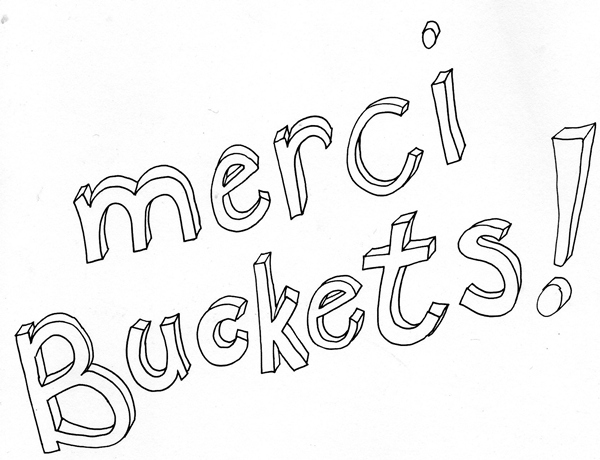 merci
Buckets!